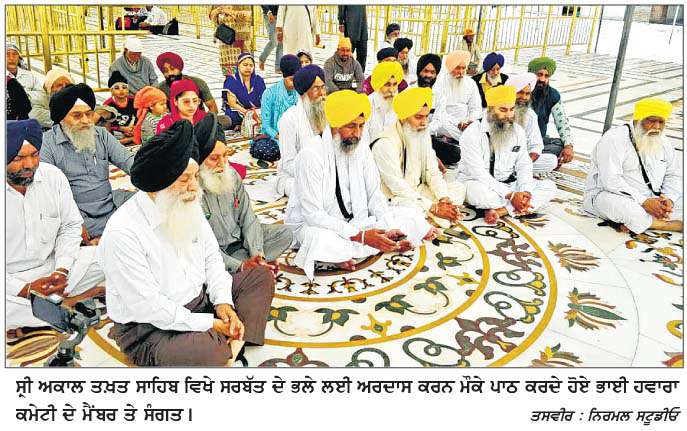 ਸ੍ਰੀ ਅਕਾਲ ਤਖ਼ਤ ਸਾਹਿਬ ਵਿਖੇ ਸਰਬੱਤ ਦੇ ਭਲੇ ਲਈ ਅਰਦਾਸ ਕਰਨ ਮੌਕੇ ਪਾਠ ਕਰਦੇ ਹੋਏ ਭਾਈ ਹਵਾਰਾ
ਕਮੇਟੀ ਦੇ ਮੈਂਬਰ ਤੇ ਸੰਗਤ। ਤਸਵੀਰ : ਨਿਰਮਲ ਸਟੂਡੀਓ